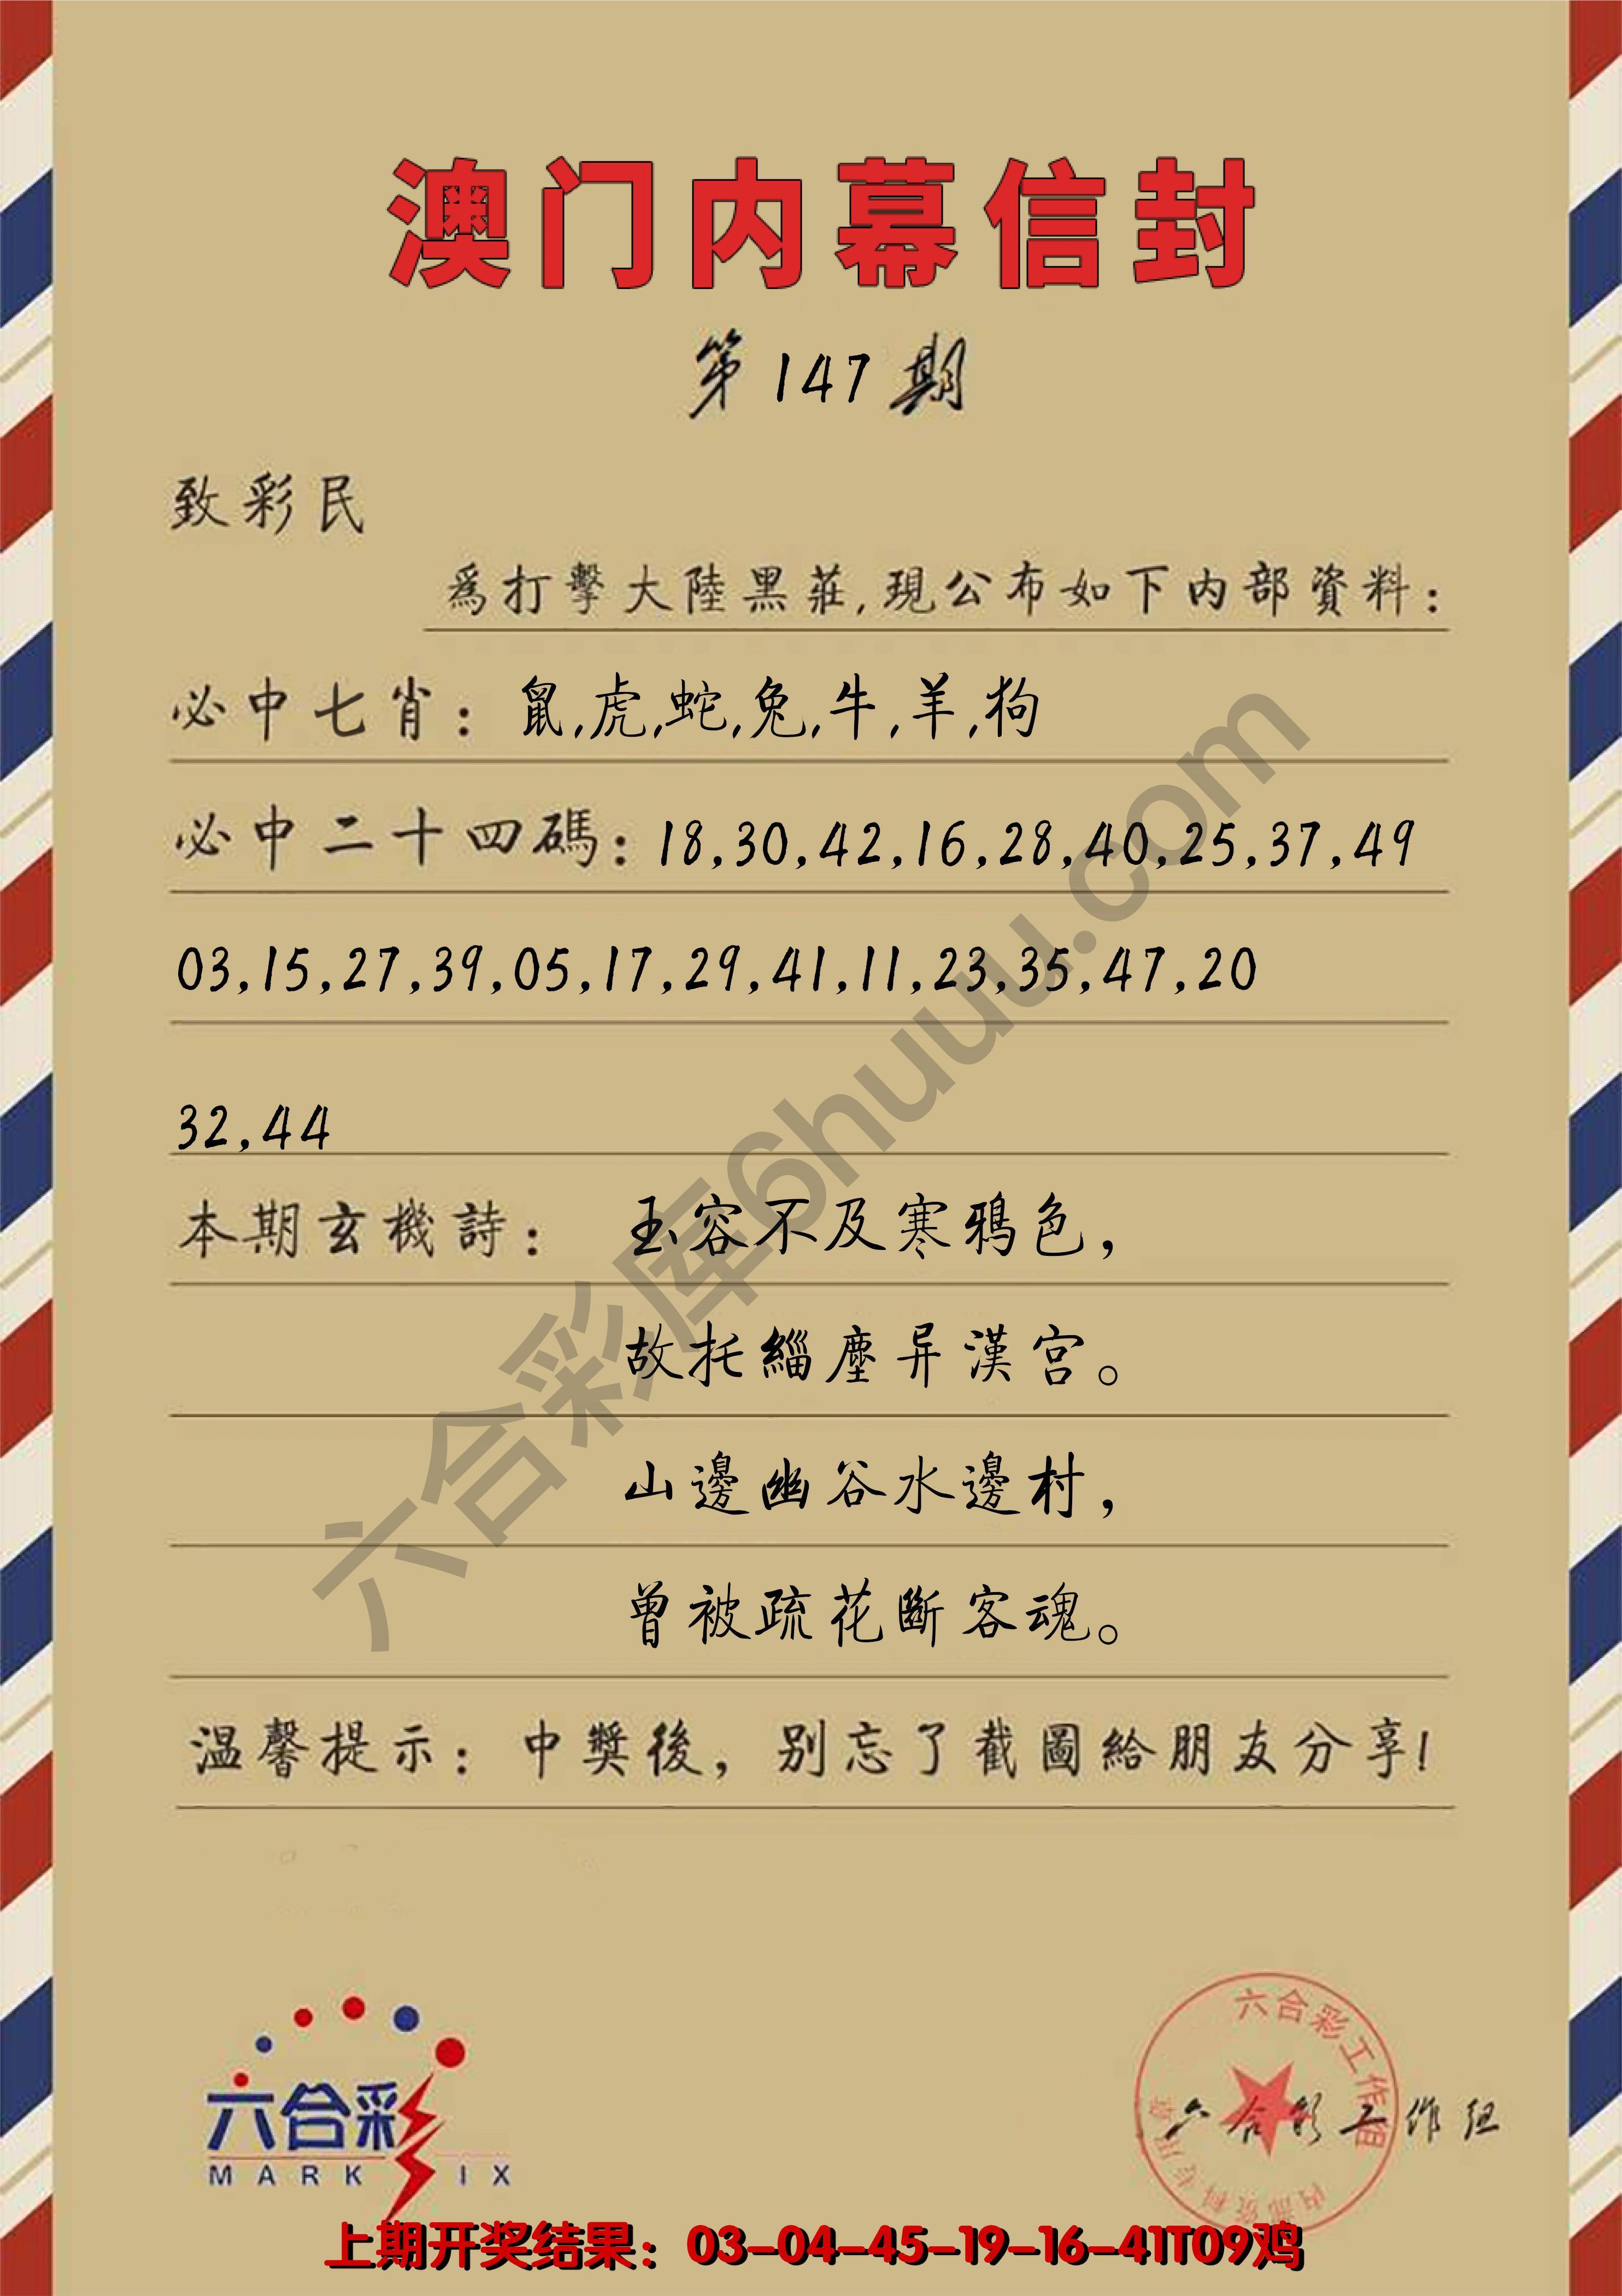 澳门内幕信封
第147期
致彩民
爲打擊大陸黑莊,現公布如下内部資料:
必中七肖: 鼠,虎,蛇,兔,牛,羊,狗
必中二十四碼: 18,30,42,16,28,40,25,37,49
03,15,27,39,05,17,29,41,11,23,35,47,20
32,44
本期玄機詩: 玉容不及寒鴉色,
故托緇塵异漢宫。
山邊幽谷水邊村,
曾被疏花斷客魂。
温馨提示: 中獎後, 别忘了截圖給朋友分享!
六合彩库6huuu.com
六合彩
MARK IX
六合彩工作组
内部资料专用章
六合彩工作组
上期开奖结果: 03-04-45-19-16-41T09鸡